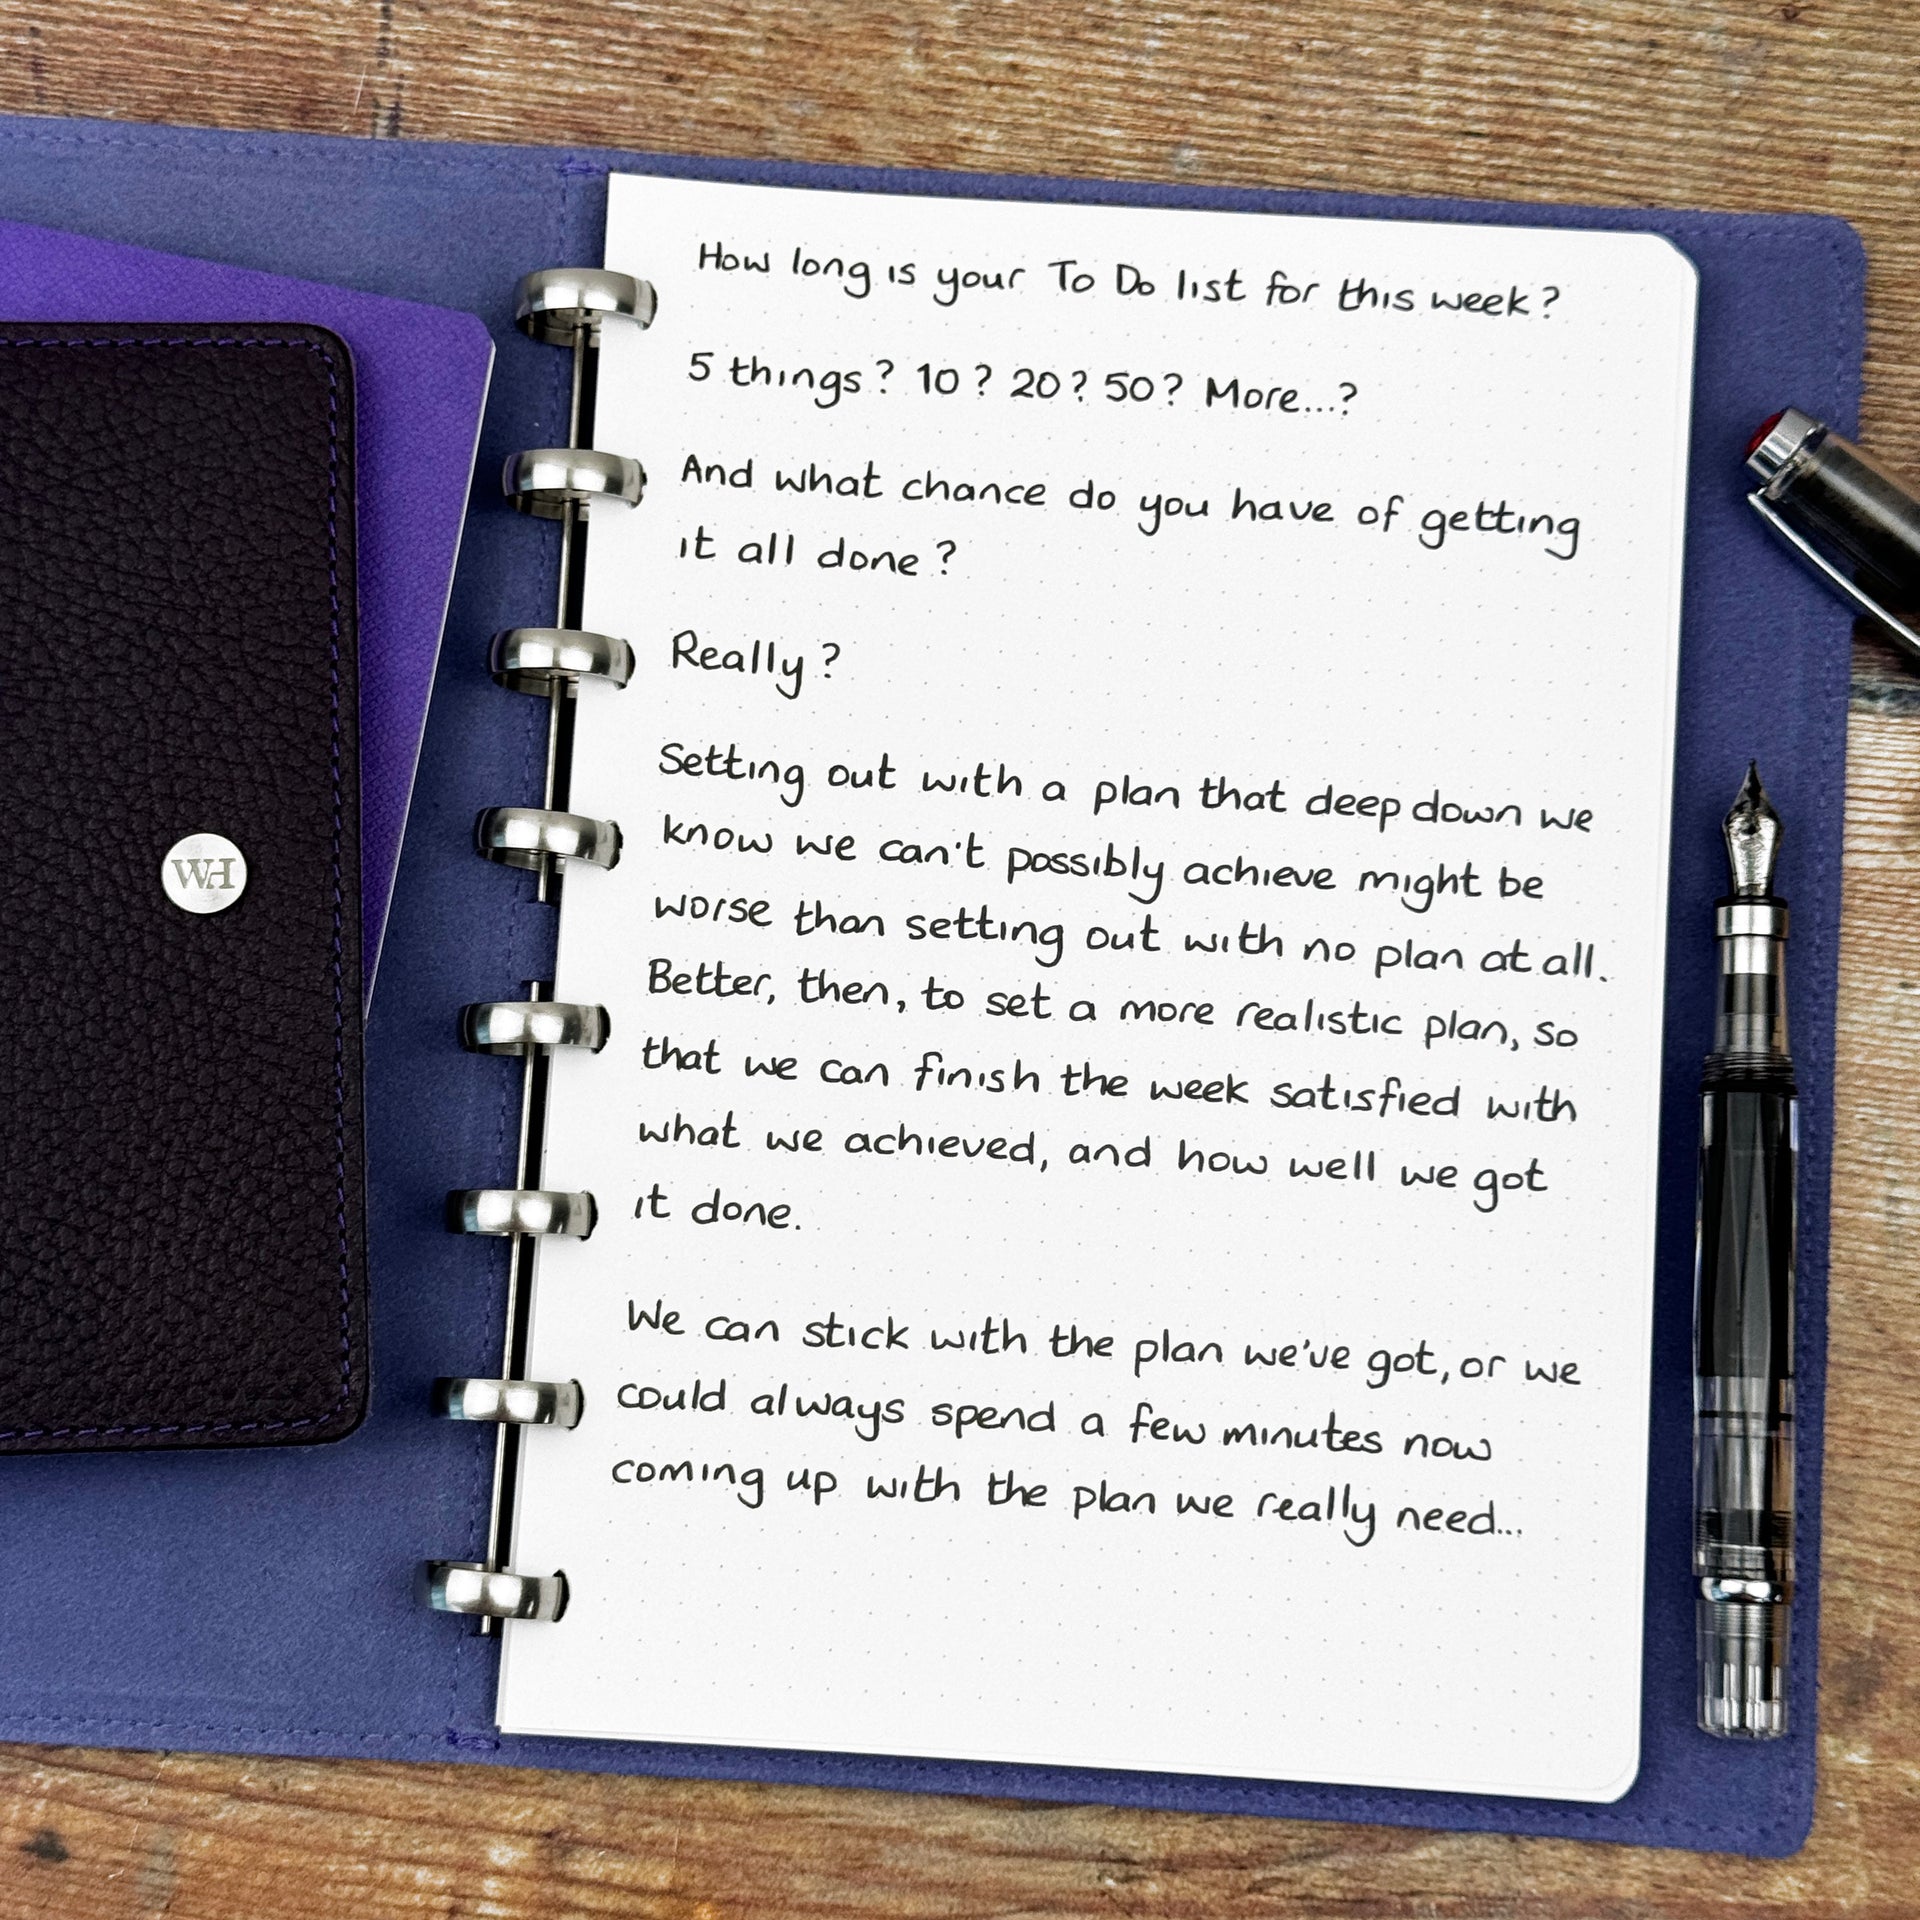 How long is your To Do list for this week?
5 things? 10? 20? 50? More...?
And what chance do you have of getting
it all done?
Really?
Setting out with a plan that deep down we
know we can't possibly achieve might be
worse than setting out with no plan at all.
Better, then, to set a more realistic plan, so
that we can finish the week satisfied with
what we achieved, and how well we got
it done.
We can stick with the plan we've got, or we
could always spend a few minutes now
coming up with the plan we really need...
WH